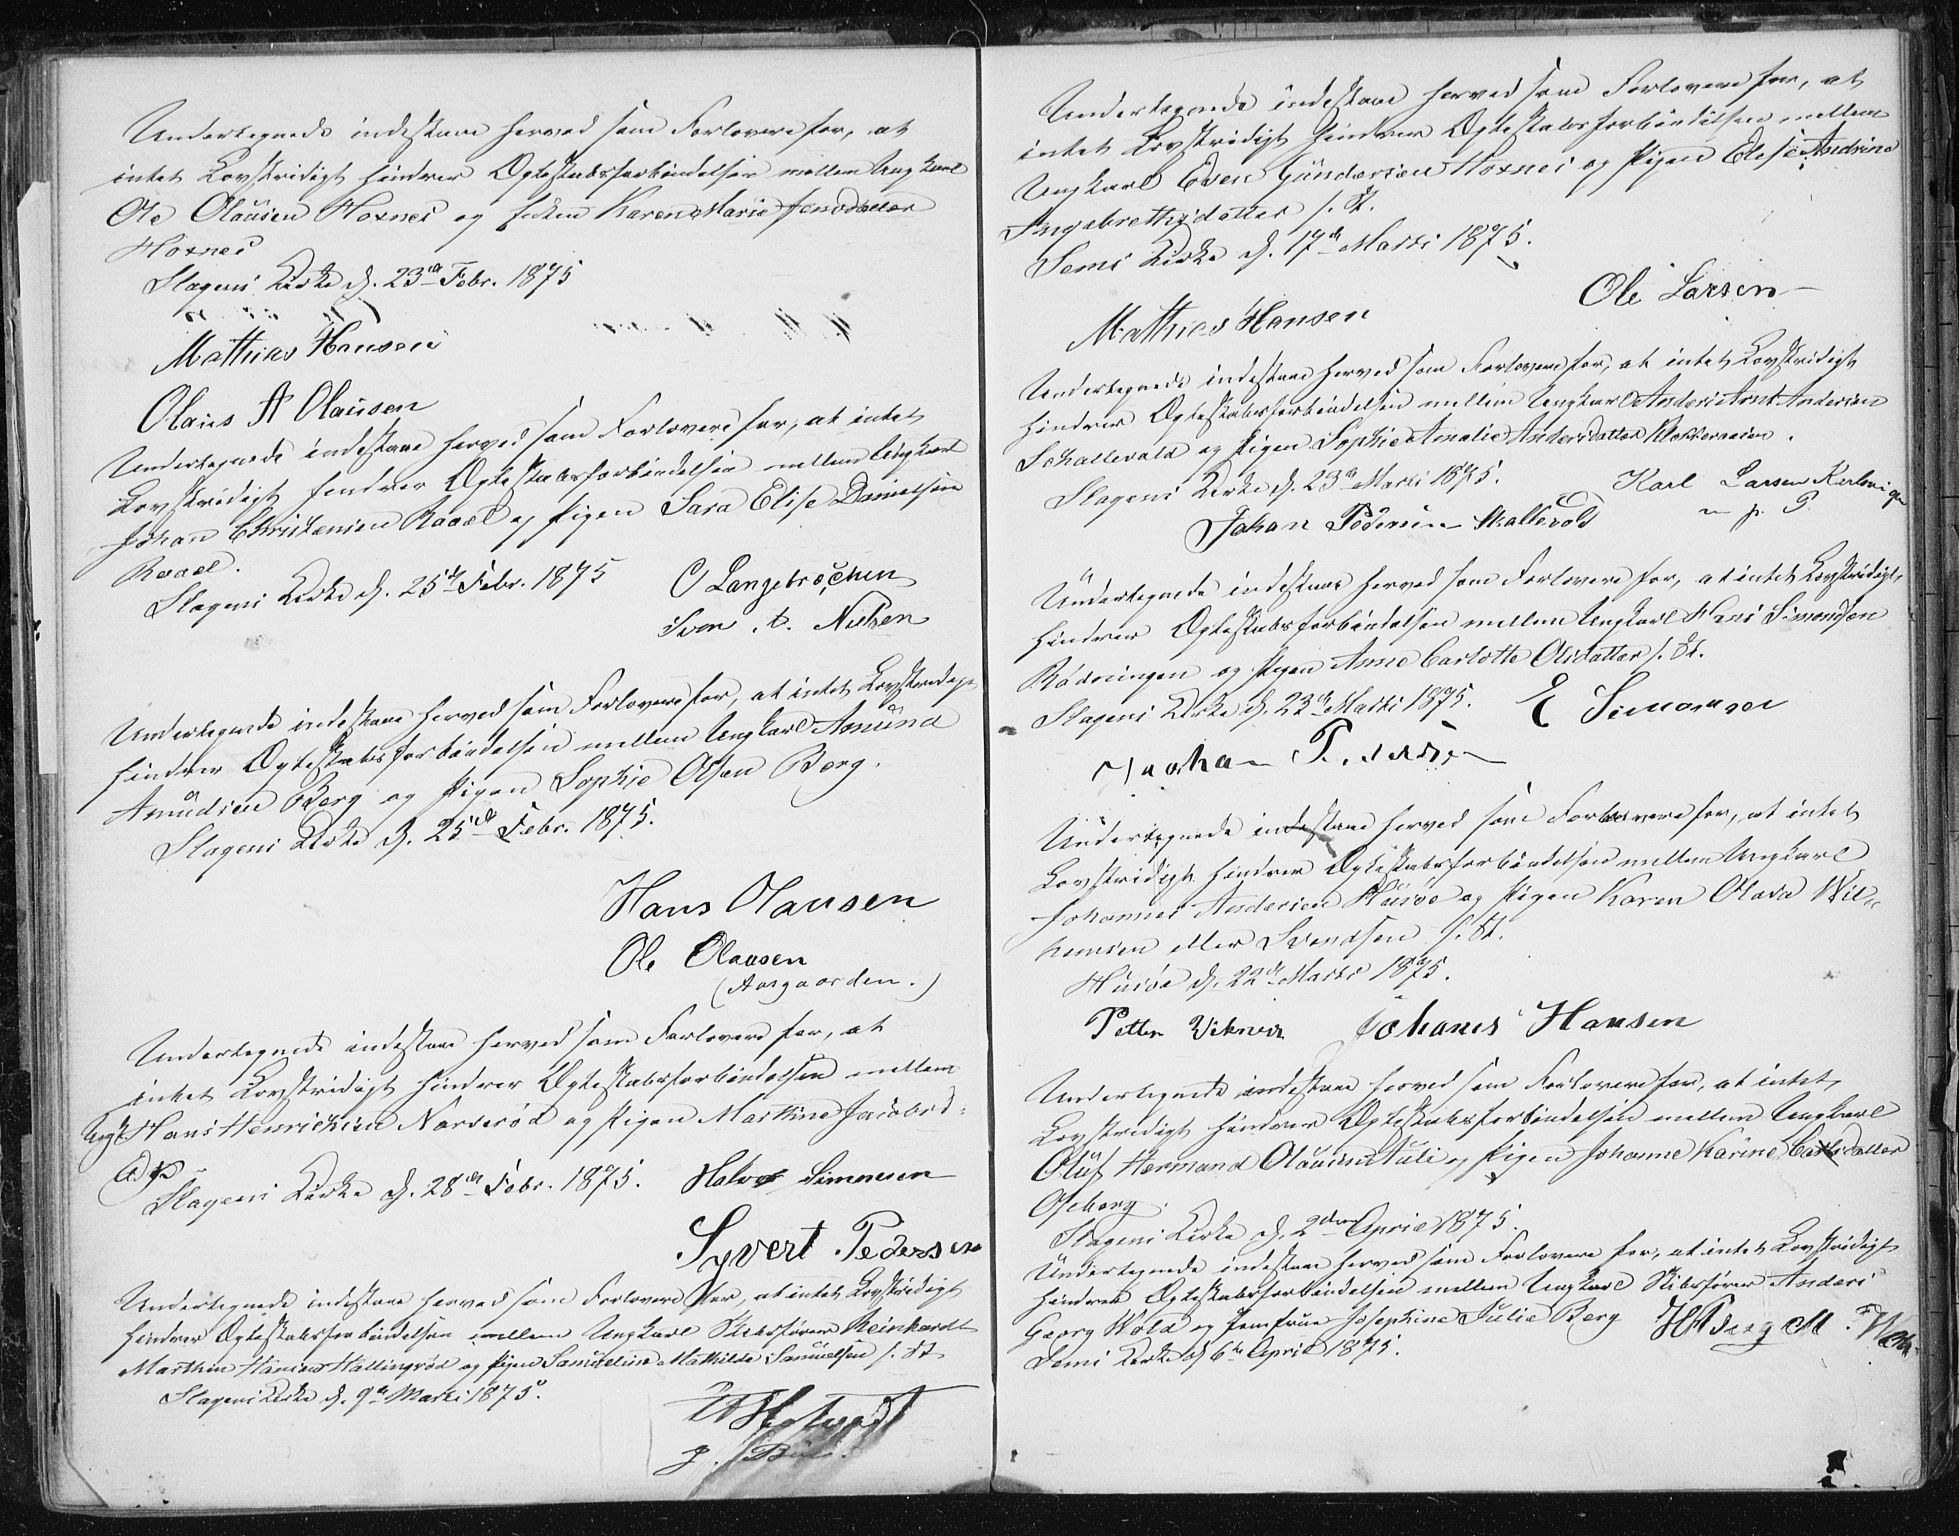 Undertegnede indestaae herved som Forlovere for, at
intet Lovstridigt hindrer Ægteskabsforbindelsen mellem Ungkarl
Ole Olausen Hoxnes og Enken Karen Marie Jensdatter
Hoxnes
Slagens Kirke d. 23de Febr. 1875
Mathias Hansen
Olaus A Olausen
Undertegnede indestaae herved som Forlovere for, at intet
Lovstridigt hindrer Ægteskabsforbindelsen mellem Ungkarl
Johan Christensen Raael og Pigen Sara Elise Danielsen
Raael.
Slagens Kirke d. 25de Febr. 1875
C Langebrochen
Sven A. Nielsen
Undertegnede indestaae herved som Forlovere for, at intet Lovstridigt
hindrer Ægteskabsforbindelsen mellem Ungkarl Amund
Amudsen Berg og Pigen Sophie Olsen Berg.
Slagens Kirke d. 25de Febr. 1875.
Hans Olausen
Ole Olausen
(Aasgaarden.)
Undertegnede indestaae herved som Forlovere for, at
intet Lovstridigt hindrer Ægteskabsforbindelsen mellem
Ungk. Hans Henriksen Narverød og Pigen Marthine Jacobsd=
Slagens Kirke d. 28de Febr. 1875.
Halvor Simonsen
Syvert Pedersen
Undertegnede indestaae herved som Forlovere for, at intet Lovstridigt
hindrer Ægteskabsforbindelsen mellem Ungkarl Skibsfører Reinhardt
Marthin Hansen Hallingrød og Pigen Samueline Mathilde Samuelsen s. St
Slagens Kirke d. 9de Marts 1875.
Undertegnede indestaae herved som Forlovere for, at
intet Lovstridigt hindrer Ægteskabsforbindelsen mellem
Ungkarl Even Gundersen Hoxnes og Pigen Elise Andrine
Ingebrethsdatter s. St.
Sems Kirke d. 17de Marts 1875.
Ole Larsen
Mathias Hansen
Undertegnede indestaae herved som Forlovere for, at intet Lovstridigt
hindrer Ægteskabsforbindelsen mellem Ungkarl Anders Arnt Andersen
Schallevald og Pigen Sophie Amalie Andersdatter Klokkeraasen.
Slagens Kirke d. 23de Marts 1875.
Karl Larsen
m p. P.
Johan Pedersen Skallevold
Undertegnede indestaae herved som Forlovere for, at intet Lovstridigt
hindrer Ægteskabsforbindelsen mellem Ungkarl Hans Simonsen
Rødningen og Pigen Anne Carlotte Olsdatter s. St.
Slagens Kirke d. 23de Marts 1875.
E Simonsen
Undertegnede indestaae herved som Forlovere for, at intet
Lovstridigt hindrer Ægteskabsforbindelsen mellem Ungkarl
Johannes Andersen Husøe og Pigen Karen Olava Wil-
humsen eller Svendsen s. St.
Husøe d. 22de Marts 1875.
Johanes Hansen
Undertegnede indestaae herved som Forlovere for, at intet
Lovstridigt hindrer Ægteskabsforbindelsen mellem Ungkarl
Oluf Hermand Olausen Auli og Pigen Johanne Karine Carlsdatter
Oseberg.
Slagens Kirke d. 2den April 1875.
Undertegnede indestaae herved som Forlovere for, at intet Lovstridigt
hindrer Ægteskabsforbindelsen mellem Ungkarl Skibsfører Anders
Georg Wold og Jomfrue Josephine Julie Berg
Sems Kirke d. 6te April 1875.